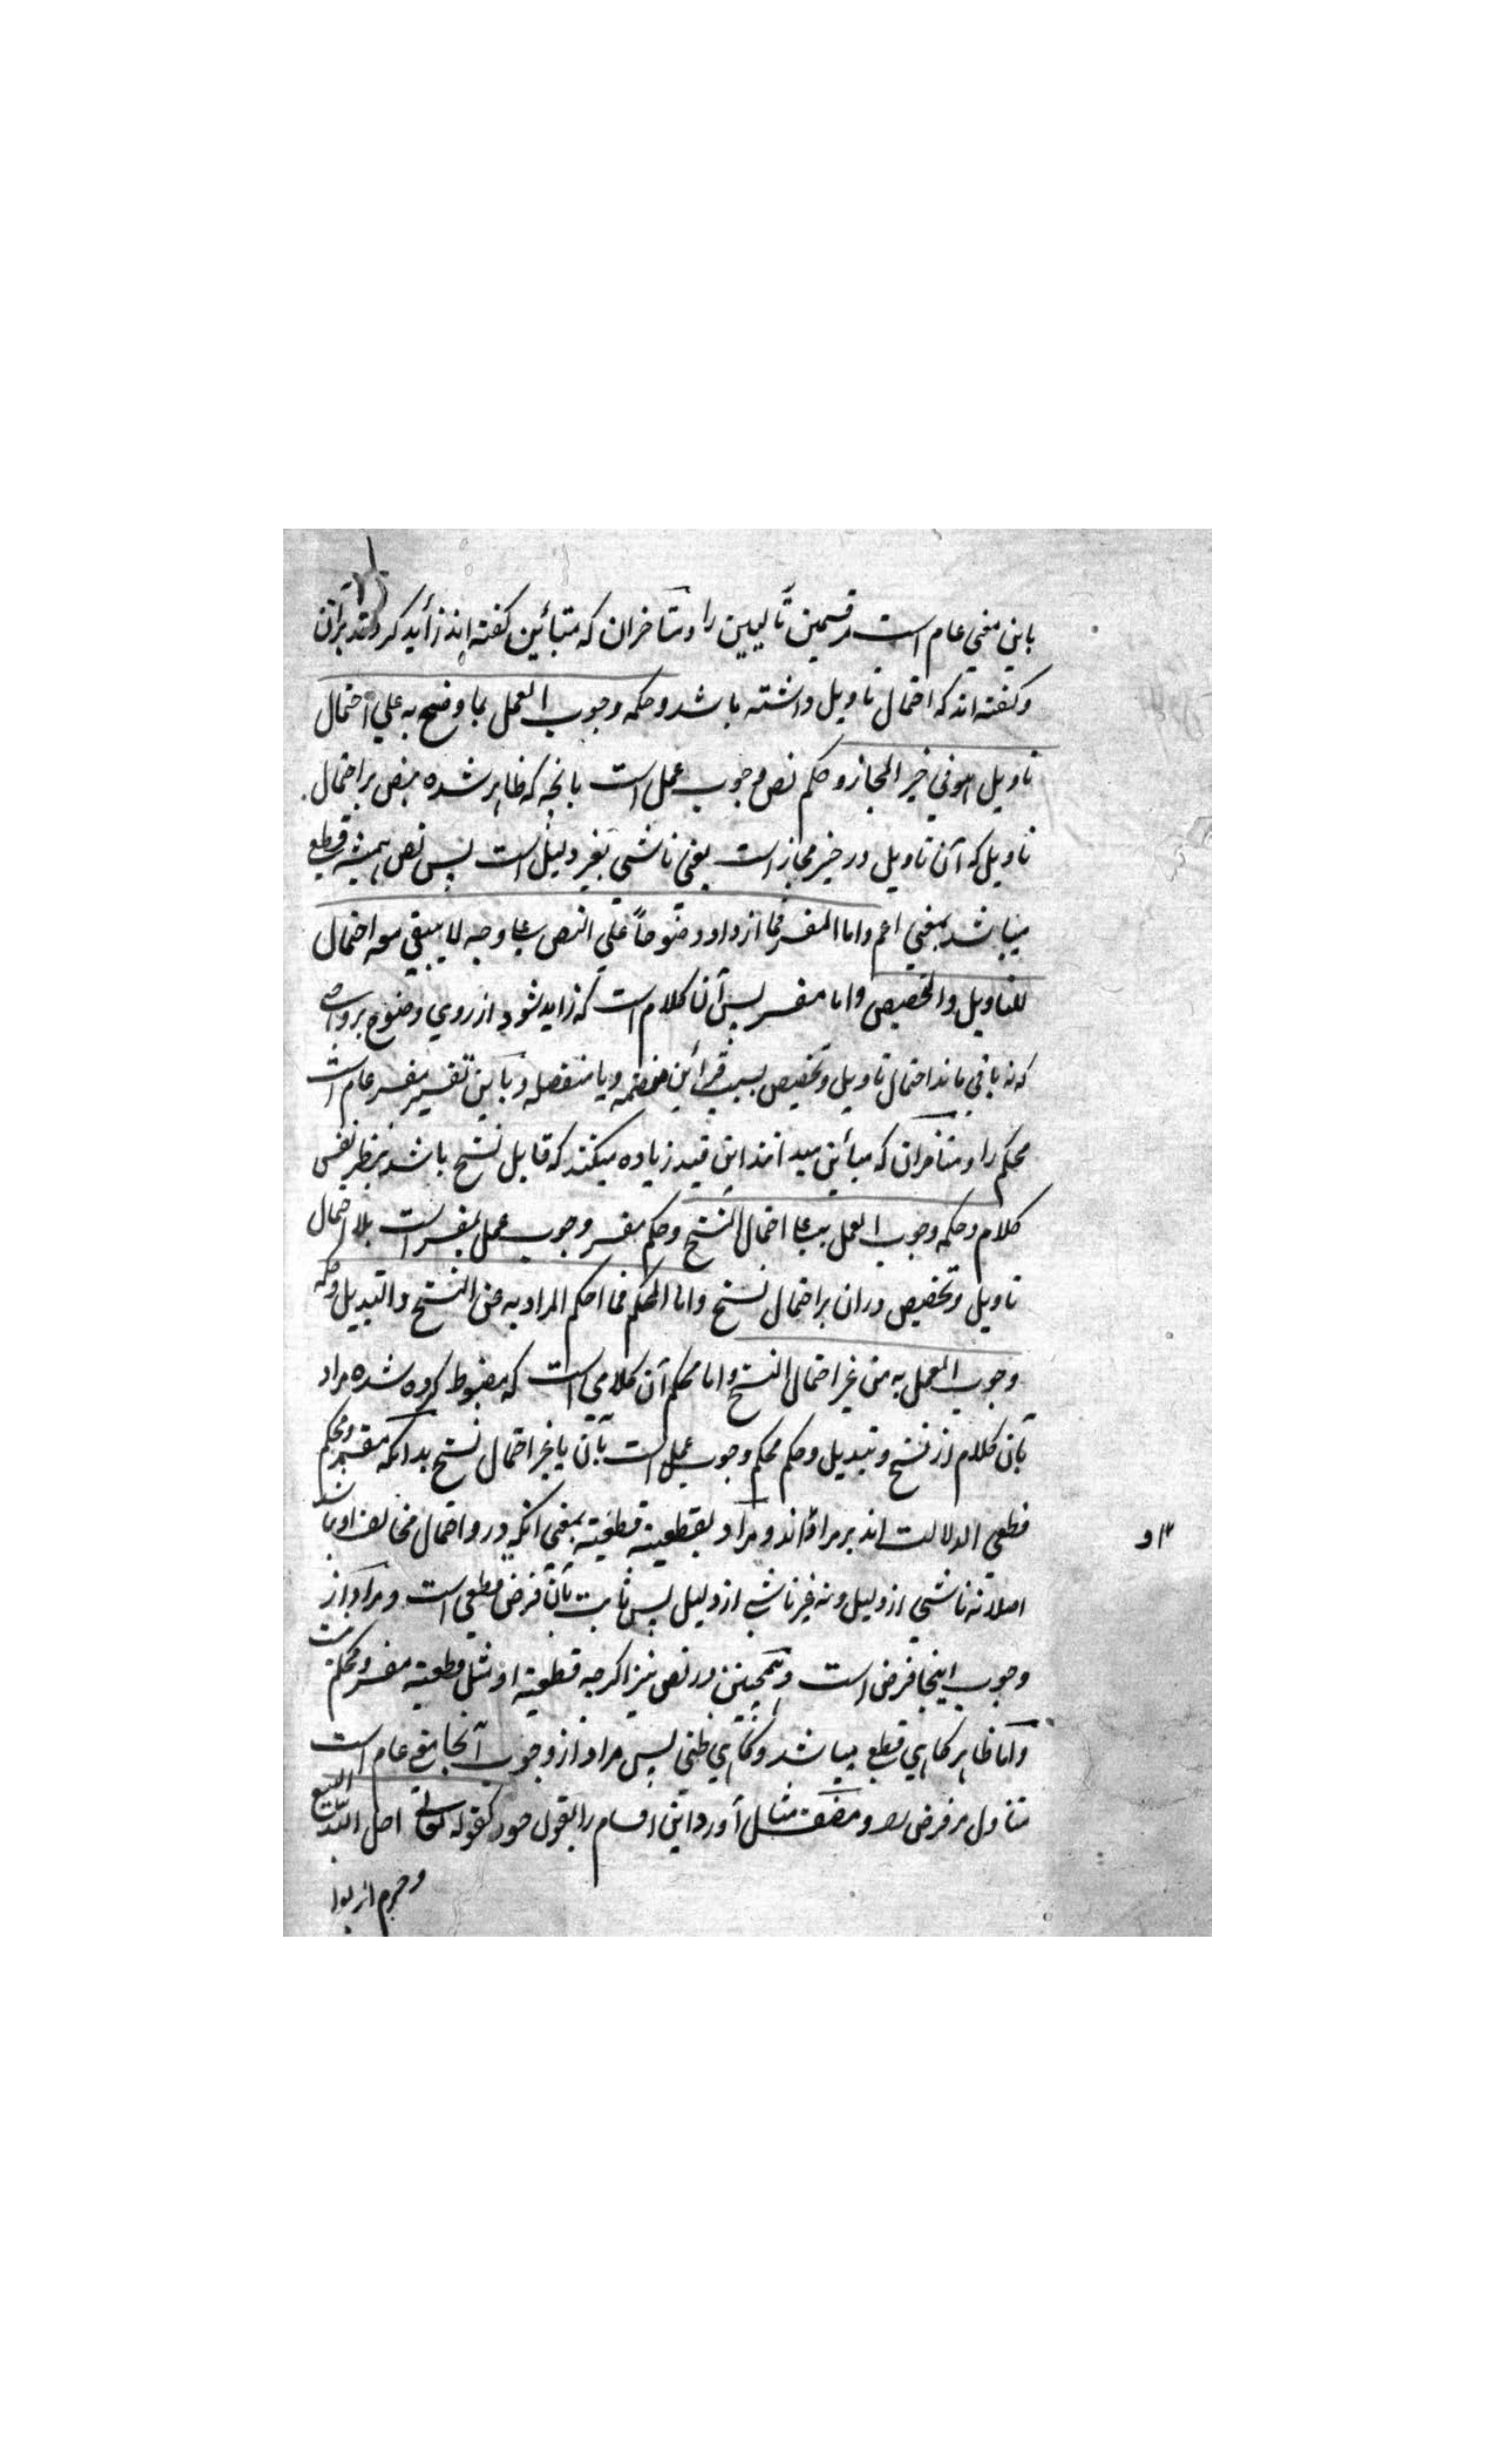 باین معنی عام است مر قسمین تالیین را و متاخران که متبائین گفته اند زاید کردند بران
و گفته اند که احتمال تاویل داشته باشد و حکمه وجوب العمل بما وضح به علی احتمال
تاویل هو فی حیز المجاز و حکم نص وجوب عمل است بانچه که ظاهر شده بنص بر احتمال
تاویل که آن تاویل در حیز مجاز است یعنی ناشی بغیر دلیل است پس نص همیشه قطعی
میباشد بمعنی اعم و اما المفسر فما ازداد وضوحاً علی النص علی وجه لا یبقی معه احتمال
للتاویل والتخصیص و اما مفسر پس آن کلام است که زاید شود از روی وضوح بر
که نه باقی ماند احتمال تاویل و تخصیص بسبب قراین منضمه و یا منفصله و باین تفسیر مفسر عام است
محکم را و متاخران که مبائن میدانند این قید زیاده میکنند که قابل نسخ باشد بنظر نفس
کلام و حکمه وجوب العمل به علی احتمال النسخ و حکم مفسر وجوب عمل بمفسر است بلا احتمال
تاویل و تخصیص دران بر احتمال نسخ و اما المحکم فما احکم المراد به عن النسخ والتبدیل و حکمه
وجوب العمل به من غیر احتمال النسخ و اما محکم آن کلامی است که مضبوط کرده شده مراد
بآن کلام از نسخ و تبدیل و حکم محکم وجوب عمل است بآن بغیر احتمال نسخ بدانکه مفسر و محکم
قطعی الدلالت اند بر مراد و مراد بقطعیة قطعیة بمعنی آنکه درو احتمال مخالف او نباشد
اصلا نه ناشی از دلیل و نه غیر ناشی از دلیل پس ثابت بآن فرض قطعی است و مراد از
وجوب اینجا فرض است و همچنین در نص نیز اگرچه قطعیة او مثل قطعیة مفسر و محکم نیست
و اما ظاهر گاهی قطعی میباشد و گاهی ظنی پس مراد از وجوب آنجا معنی عام است
متناول مر فرض را و مصنف مثال آورد این اقسام را بقول خود کقوله تعالی احل الله البیع
و حرم الربوا